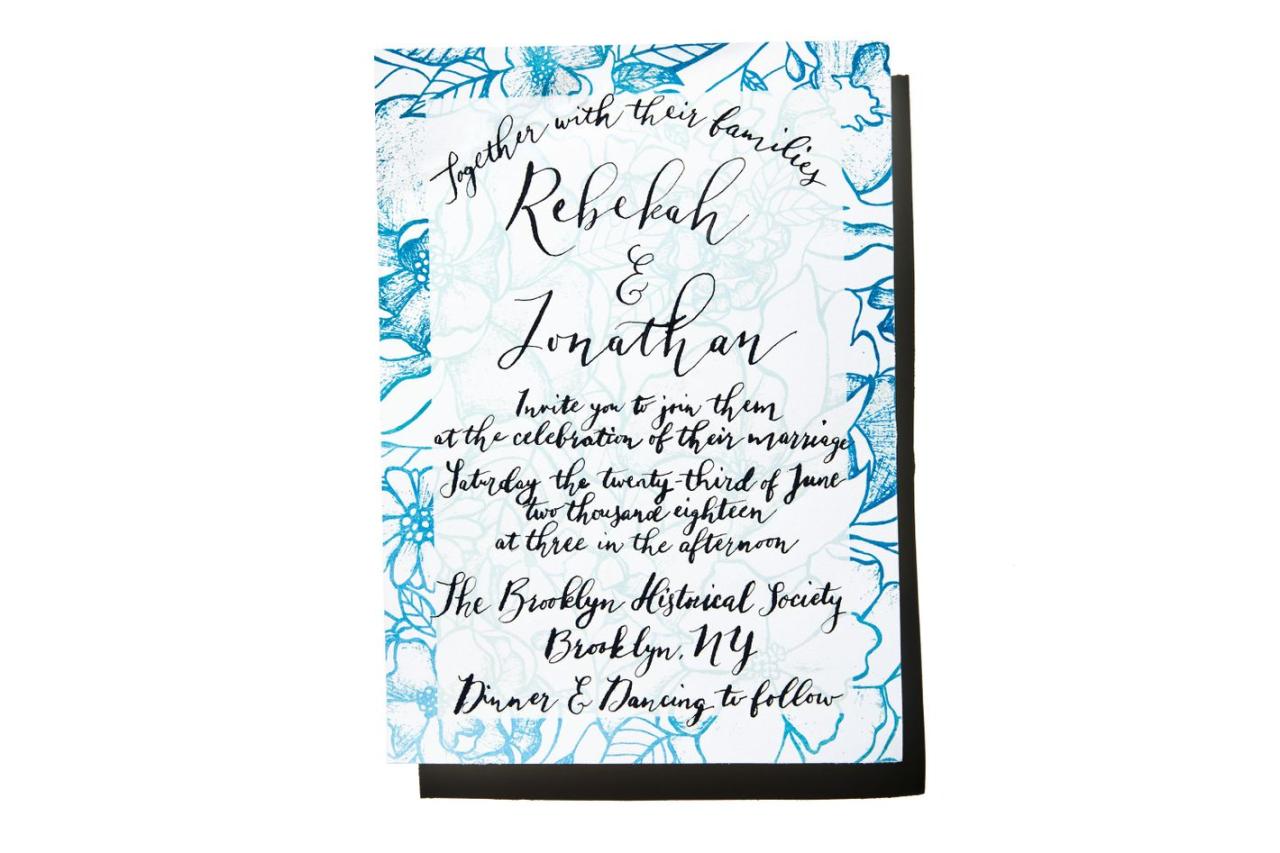 Together with their families
Rebekah
&
Jonathan
Invite you to join them
at the celebration of their marriage
Saturday the twenty-third of June
two thousand eighteen
at three in the afternoon
The Brooklyn Historical Society
Brooklyn, NY
Dinner & Dancing to follow